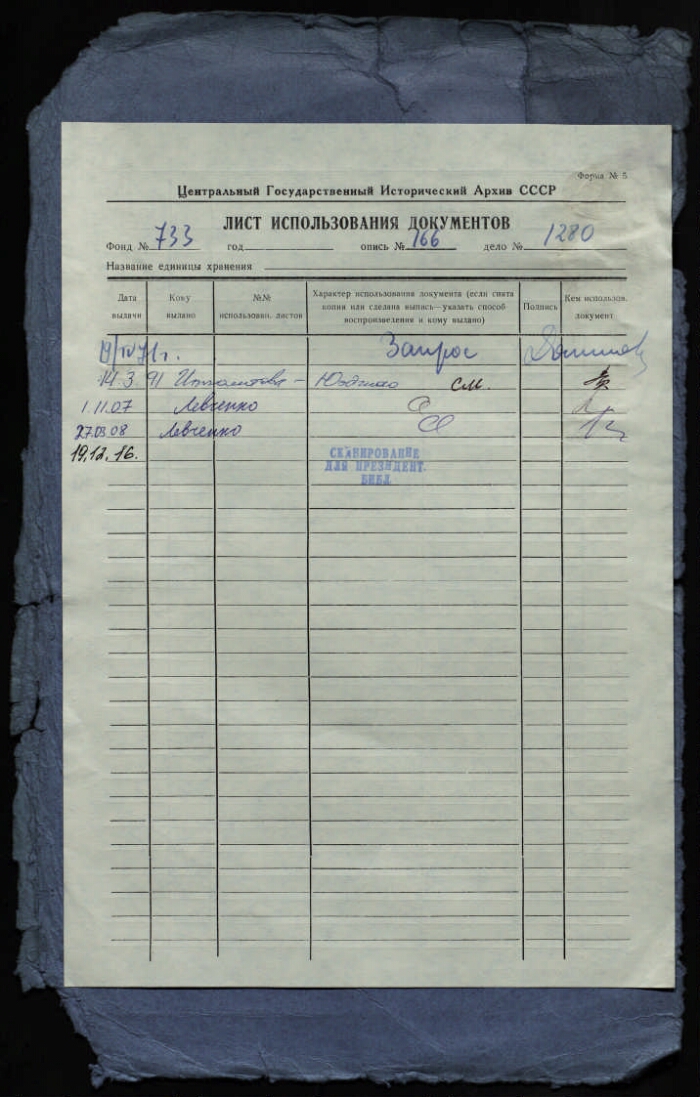 Форма № 5
Центральный Государственный Исторический Архив СССР
ЛИСТ ИСПОЛЬЗОВАНИЯ ДОКУМЕНТОВ
Фонд № 733 год опись № 166 дело № 1280
Название единицы хранения
Дата выдачи
Кому выдано
№№ использован. листов
Характер использования документа (если снята
копия или сделана выпись—указать способ
воспроизведения и кому выдано)
Подпись
Кем использов. документ
19/IV 71г. Запрос
14.3.91 см.
1.11.07 Левченко
27.03.08 Левченко
19.12.16.
СКАНИРОВАНИЕ
ДЛЯ ПРЕЗИДЕНТ.
БИБЛ.